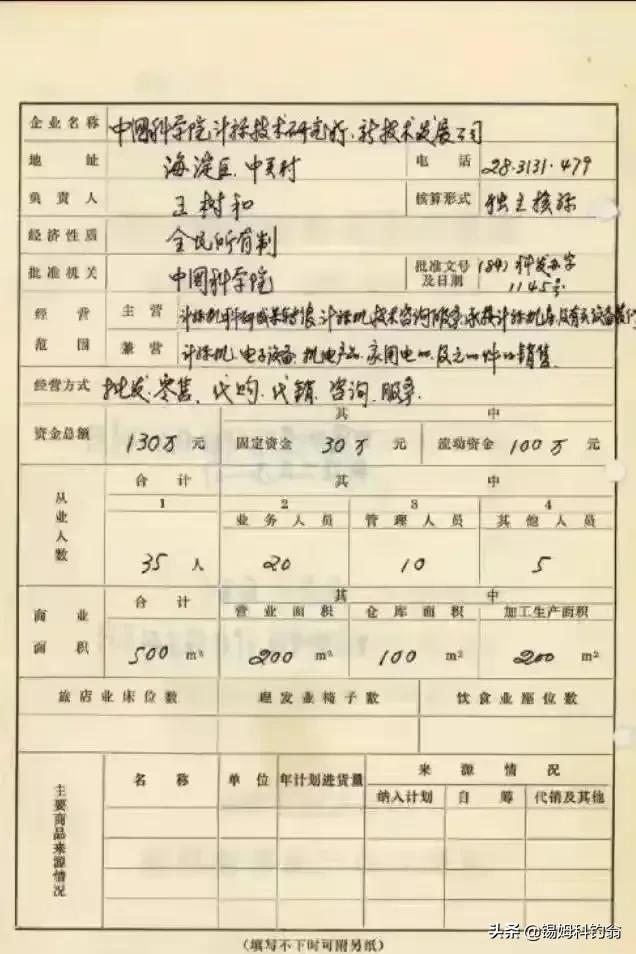 企业名称 中国科学院计标技术研究所新技术发展公司
地址 海淀区中关村 电话 28.3131.479
负责人 王树和 核算形式 独立核标
经济性质 全民所有制
批准机关 中国科学院 批准文号及日期 (84)科发办字1145号
经营范围 主营 计标机科研成果转让、计标机技术咨询服务、承接计标机
兼营 计标机、电子设备、机电产品、家用电器及元器件的销售
经营方式 批发.零售、代购.代销.咨询.服务.
其中
资金总额 130万元 固定资金 30万元 流动资金 100万元
从业人数 合计 其中
1 2 3 4
业务人员 管理人员 其他人员
35人 20 10 5
商业面积 合计 其中
营业面积 仓库面积 加工生产面积
500 m² 200 m² 100 m² 200 m²
旅店业床位数 理发业椅子数 饮食业座位数
主要商品来源情况 名称 单位 年计划进货量 来源情况
纳入计划 自筹 代销及其他
(填写不下时可附另纸)
头条 @锡姆科钓翁